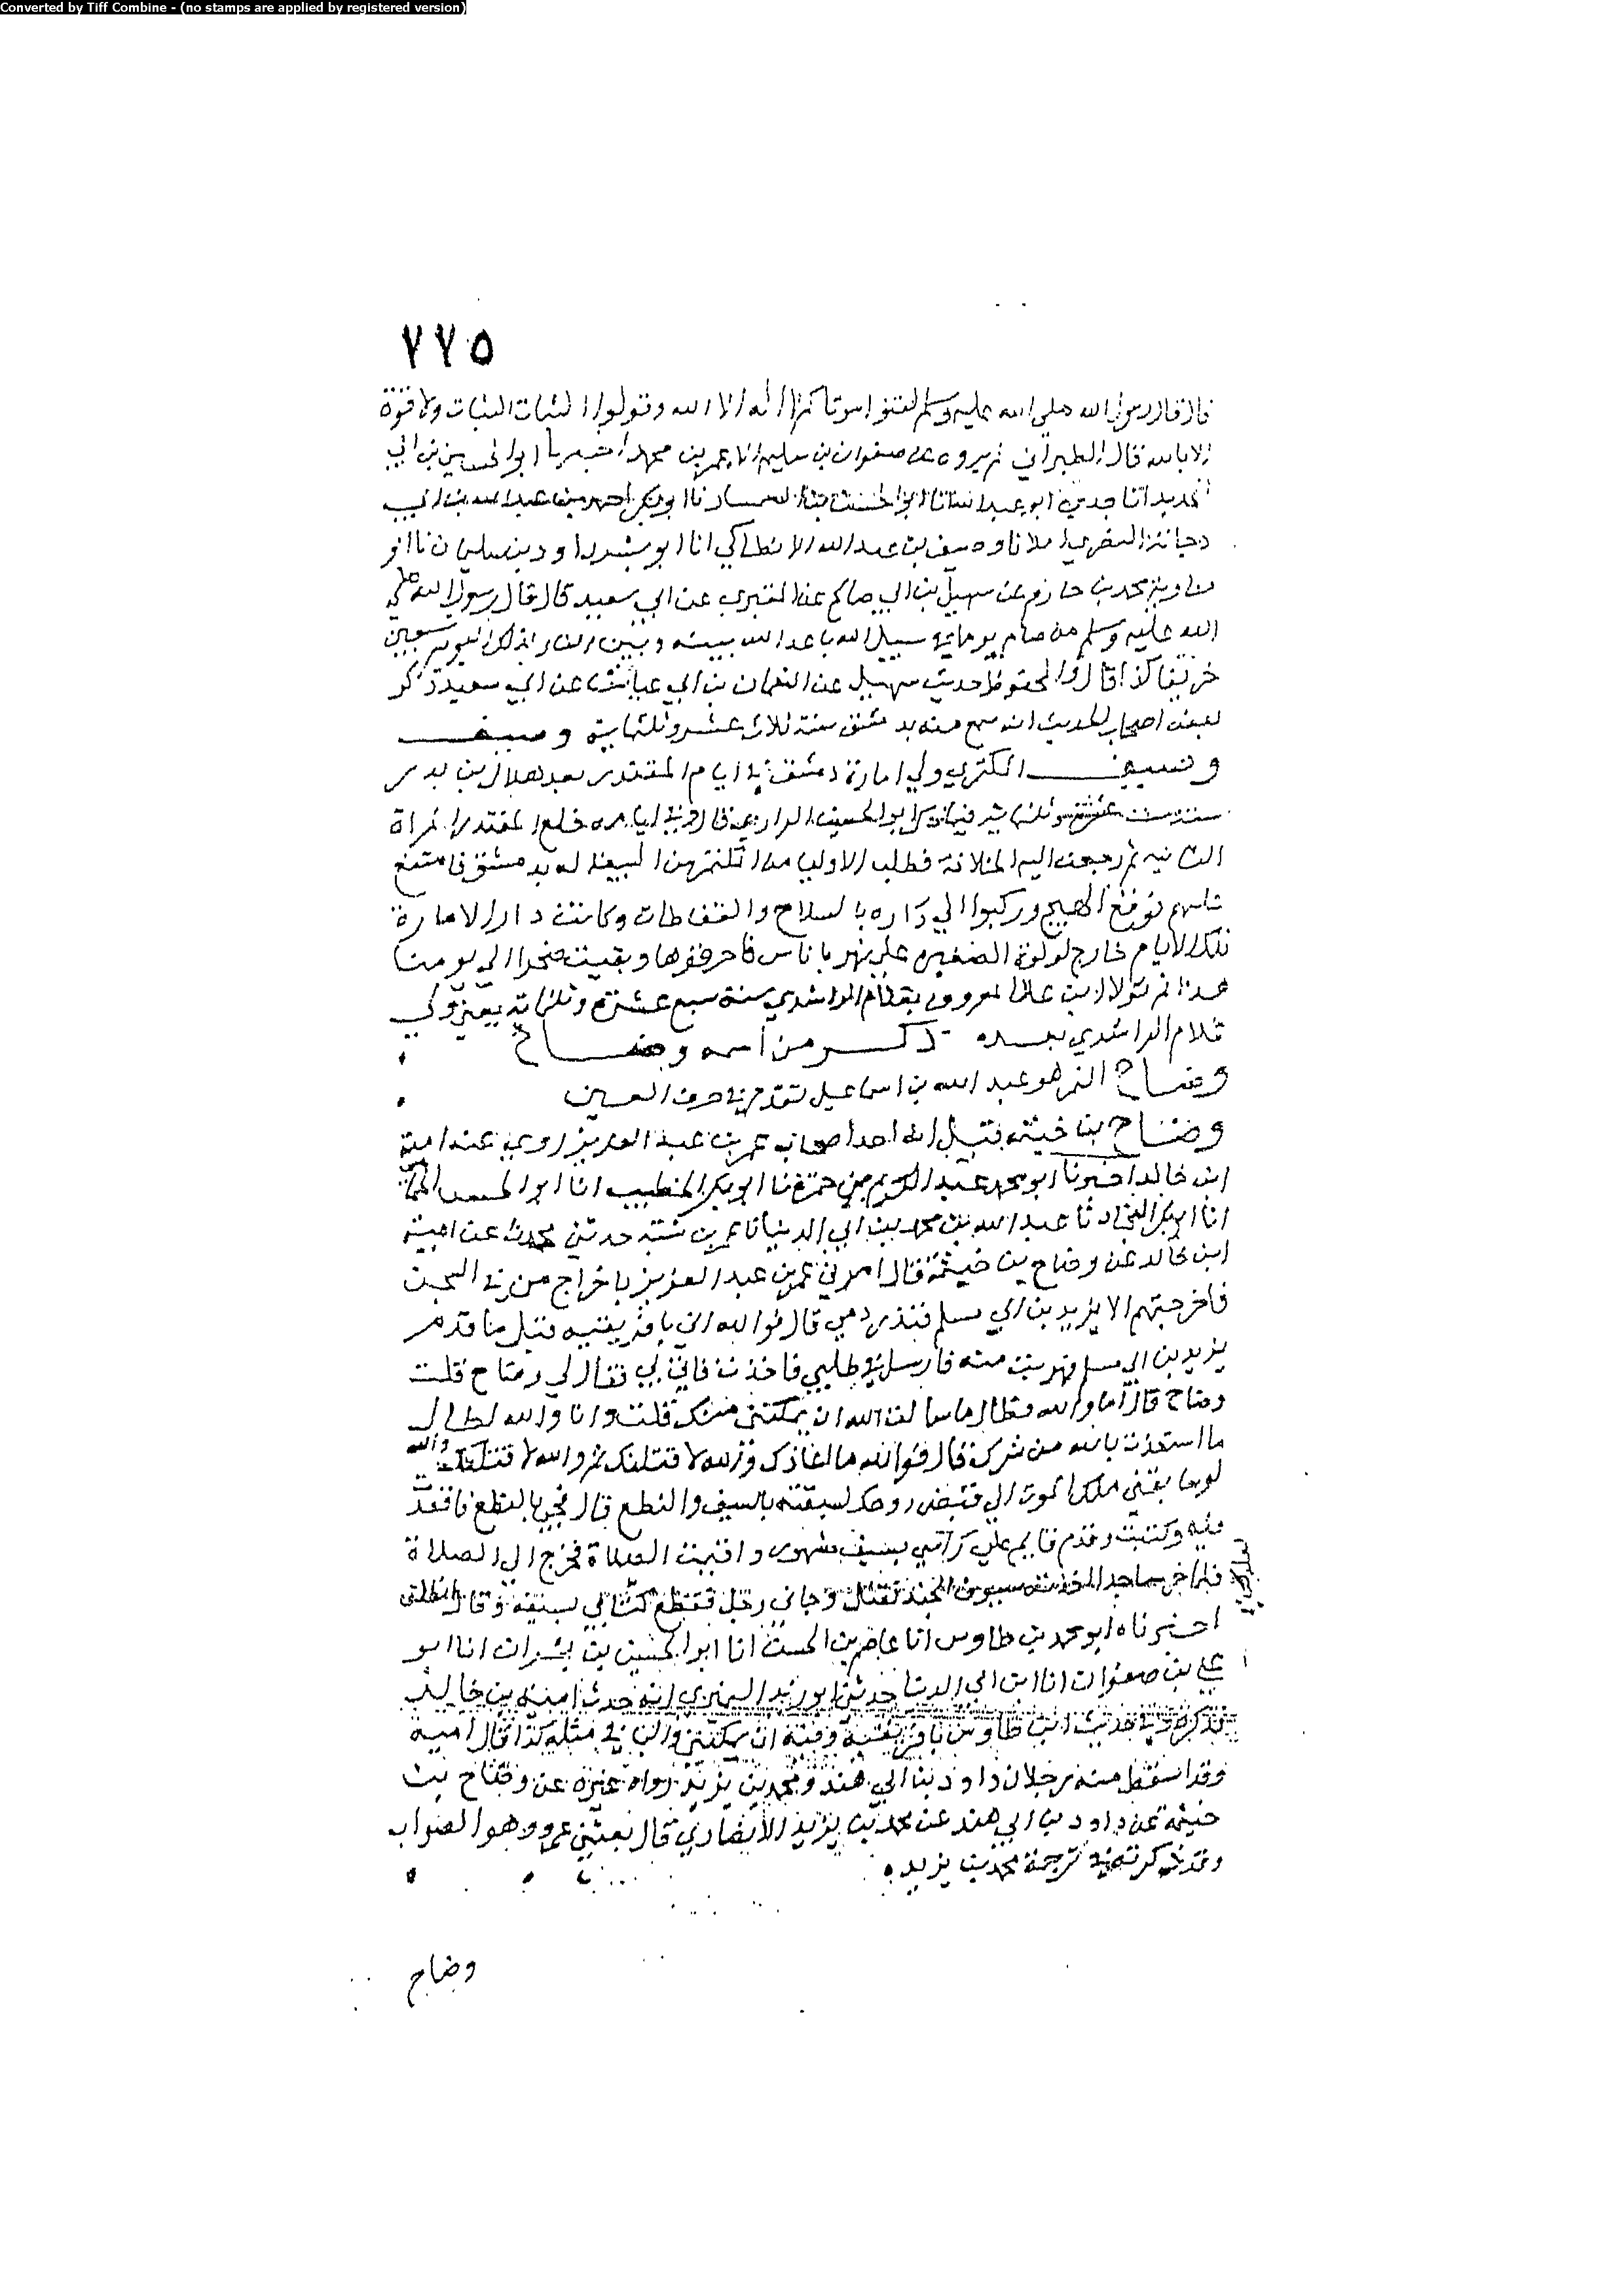 Converted by Tiff Combine - (no stamps are applied by registered version)
٧٧٥
قال قال رسول الله صلى الله عليه وسلم لقنوا موتاكم لا اله الا الله وقولوا الثبات الثبات ولا قوة
الا بالله قال الطبراني لم يروه عن صفوان بن سليم الا عمر بن محمد اخبرنا ابو الحسين بن ابي
الحديد انا جدي ابو عبد الله انا ابو الحسن بن السمسار نا ابو بكر احمد بن عبد الله بن ابي
دجانة النصري املا نا وصيف بن عبد الله الانطاكي انا ابو بشر داود بن سليمان نا ابو
معاوية محمد بن حازم عن سهيل بن ابي صالح عن المقبري عن ابي سعيد قال قال رسول الله صلى
الله عليه وسلم من صام يوما في سبيل الله باعد الله بينه وبين النار بذلك اليوم سبعين
خريفا كذا قال والمحفوظ حديث سهيل عن النعمان بن ابي عياش عن ابي سعيد ذكر
بعض اصحاب الحديث انه سمع منه بدمشق سنة ثلاث عشر وثلثماية وصيف
وصيف البكتمري ولي امارة دمشق في ايام المقتدر بعد هلال بن بدر
سنة ست عشرة وثلثماية فيما ذكر ابو الحسين الرازي قال وفي ايامه خلع المقتدر المرة
الثانيه ثم رجعت اليه الخلافة فطلب الاوليا من البيعة له بدمشق فامتنع
عليهم فوقع الهيج وركبوا الي داره بالسلاح والنفاطات وكانت دار الامارة
تلك الايام خارج لولوة الصغيره على نهر باناس فاحرقوها وبقيت صحرا الي يومنا
هذا ثم تولا ابن المعروف بغلام الراشدي سنة سبع عشرة وثلثماية يعني ولي
غلام الراشدي بعده ذكر من اسمه وضاح
وضاح اليمن هو عبد الله بن اسماعيل تقدم في حرف العين
وضاح بن خيثمه يقال انه احد اصحاب عمر بن عبد العزيز روي عنه امية
ابن خالد اخبرنا ابو محمد عبد الكريم بن حمزة نا ابو بكر الخطيب انا ابو الحسن
انا ابو بكر النجاد نا عبد الله بن محمد بن ابي الدنيا نا عمر بن شبة حدثني محدث عن امية
ابن خالد عن وضاح بن خيثمة قال امرني عمر بن عبد العزيز باخراج من في السجن
فاخرجتهم الا يزيد بن ابي مسلم فنذر دمي قال فوالله اني بافريقيه قيل قد قدم
يزيد بن ابي مسلم فهربت منه فارسل في طلبي فاخذت فاتي بي فقال لي وضاح قلت
وضاح قال اما والله لطال ما سالت الله ان يمكنني منك قلت وانا والله لطال
ما استعذت بالله من شرك قال فوالله ما اعاذك والله لاقتلنك ثم والله لاقتلنك والله
لو سابقني ملك الموت الي قبض روحك لسبقته بالسيف والنطع قال فجي بالنطع فاقعدت
فيه وكتفت وقام قايم على راسي بسيف مشهور واقيمت الصلاة فخرج الي الصلاة
فلما خر ساجدا اخذته سيوف الجند فقتل وجاني رجل فقطع كتافي بسيفه وقال انطلق
اخبرناه ابو محمد بن طاوس انا عاصم بن الحسن انا ابو الحسين بن بشران انا ابو
علي بن صفوان انا ابن ابي الدنيا حدثني ابو زيد النميري انه حدث امية بن خالد
فذكره وفي حديث ابن طاوس بافريقية وفيه ان يمكنني والباقي مثله كذا قال امية
وقد اسقط منه رجلان داود بن ابي هند ومحمد بن يزيد رواه غيره عن وضاح بن
خيثمة عن داود بن ابي هند عن محمد بن يزيد الانصاري قال بعثني عمر وهو الصواب
وقد ذكرته في ترجمة محمد بن يزيد
وضاح